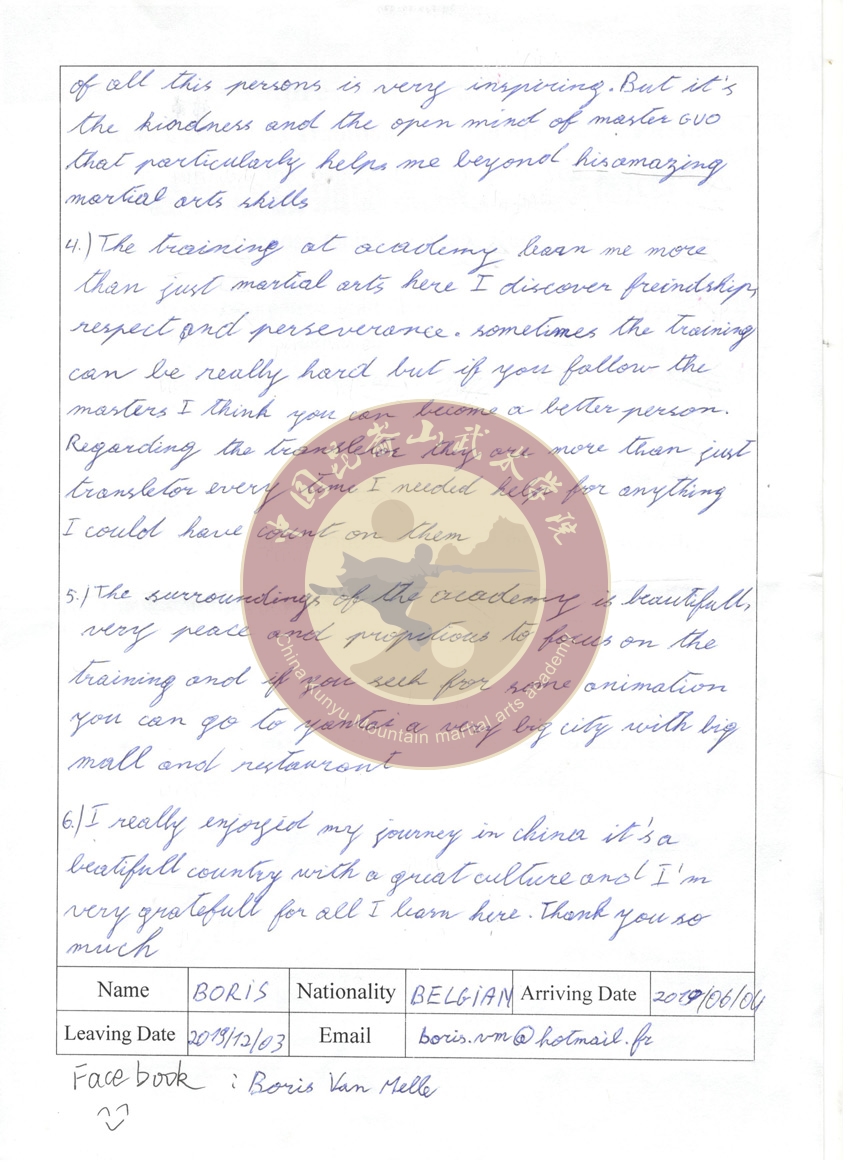 of all this persons is very inspiring. But it's
the kindness and the open mind of master GUO
that particularly helps me beyond his amazing
martial arts skills
4.) The training at academy learn me more
than just martial arts here I discover freindship,
respect and perseverance. sometimes the training
can be really hard but if you follow the
masters I think you can become a better person.
Regarding the transletor they are more than just
transletor every time I needed help for anything
I could have count on them
5.) The surroundings of the academy is beautifull,
very peace and propitious to focus on the
training and if you seek for some animation
you can go to yantai a very big city with big
mall and restaurant
6.) I really enjoyed my journey in china it's a
beatifull country with a great culture and I'm
very gratefull for all I learn here. Thank you so
much
Name BORIS Nationality BELGIAN Arriving Date 2019/06/04
Leaving Date 2019/12/03 Email boris.vm@hotmail.fr
Facebook : Boris Van Melle
中国昆嵛山武术学院
China Kunyu Mountain martial arts academy